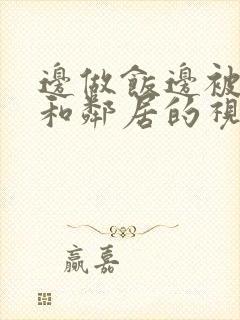 邊做飯邊被
和鄰居的視
贏嘉